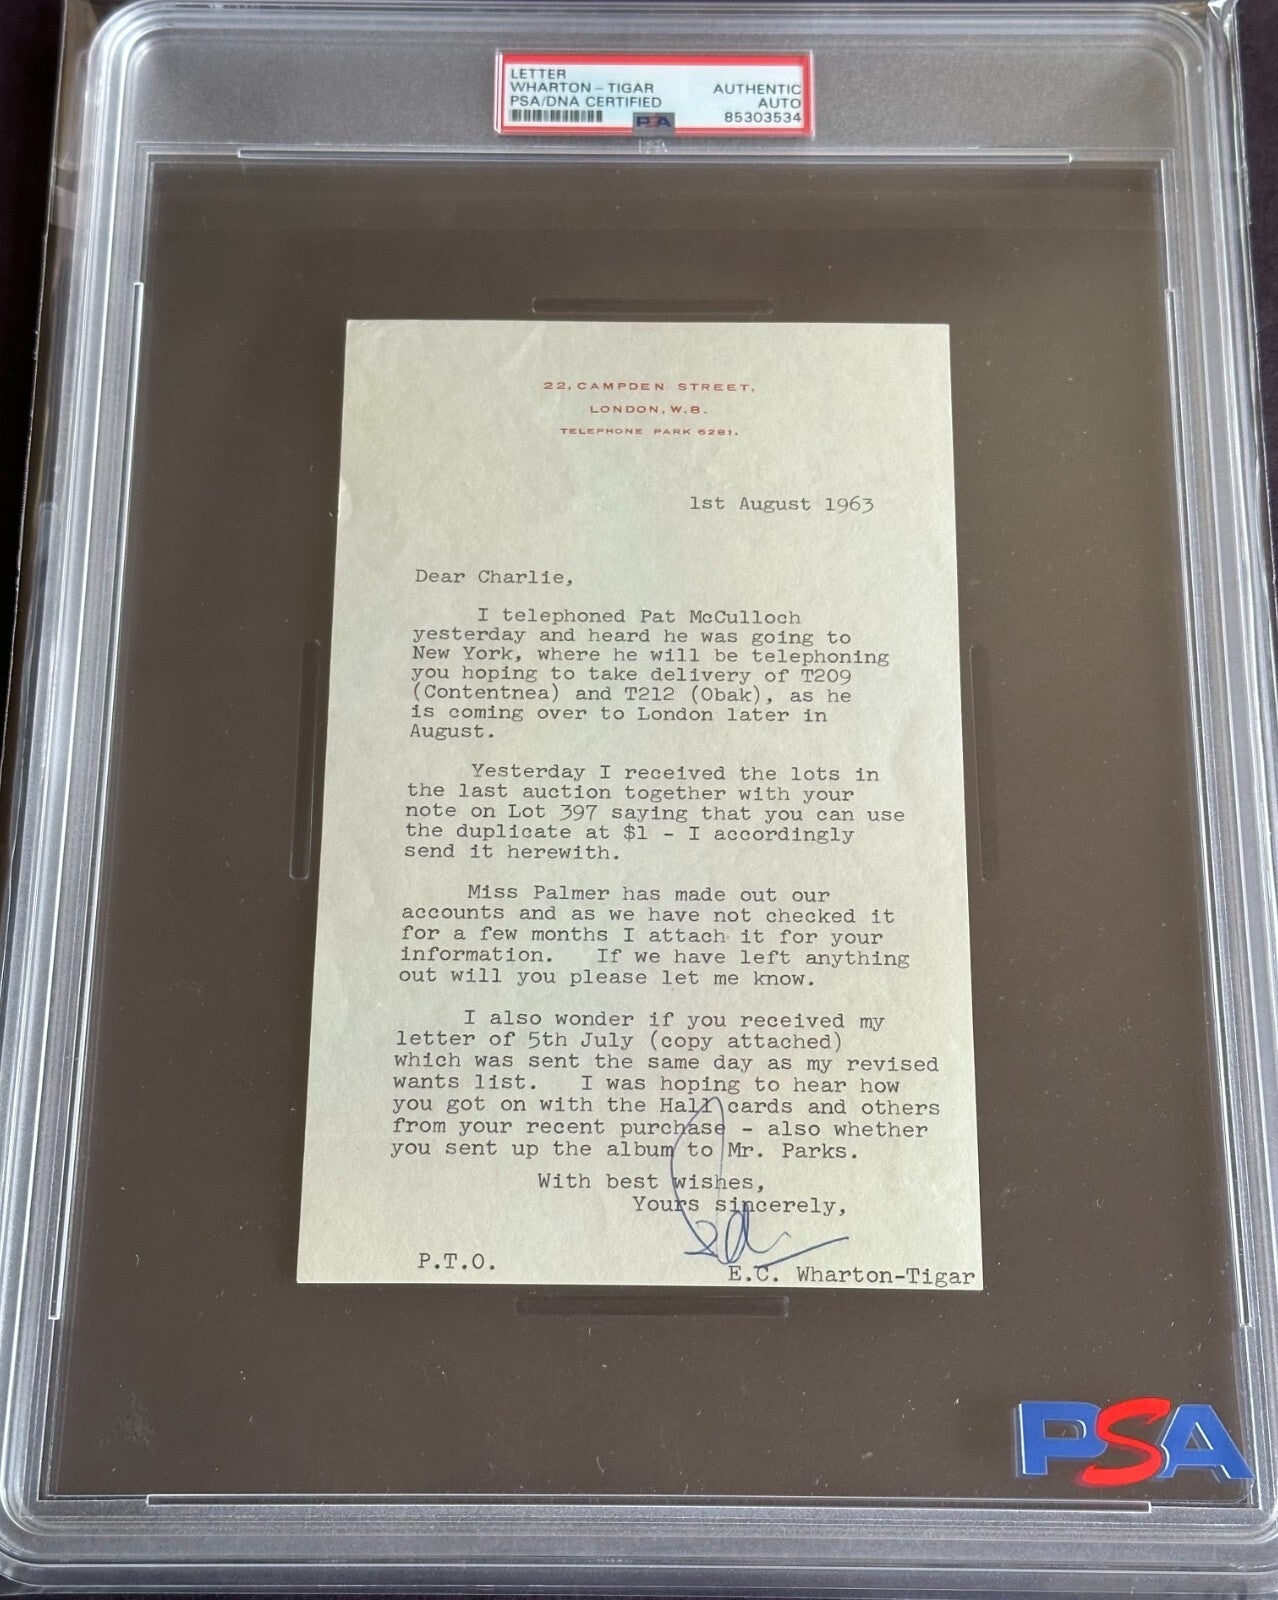 LETTER
WHARTON - TIGAR AUTHENTIC
PSA/DNA CERTIFIED AUTO
PSA 85303534
22, CAMPDEN STREET,
LONDON, W.8.
TELEPHONE PARK 6281.
1st August 1963
Dear Charlie,
I telephoned Pat McCulloch
yesterday and heard he was going to
New York, where he will be telephoning
you hoping to take delivery of T209
(Contentnea) and T212 (Obak), as he
is coming over to London later in
August.
Yesterday I received the lots in
the last auction together with your
note on Lot 397 saying that you can use
the duplicate at $1 - I accordingly
send it herewith.
Miss Palmer has made out our
accounts and as we have not checked it
for a few months I attach it for your
information. If we have left anything
out will you please let me know.
I also wonder if you received my
letter of 5th July (copy attached)
which was sent the same day as my revised
wants list. I was hoping to hear how
you got on with the Hall cards and others
from your recent purchase - also whether
you sent up the album to Mr. Parks.
With best wishes,
Yours sincerely,
P.T.O.
E.C. Wharton-Tigar
PSA